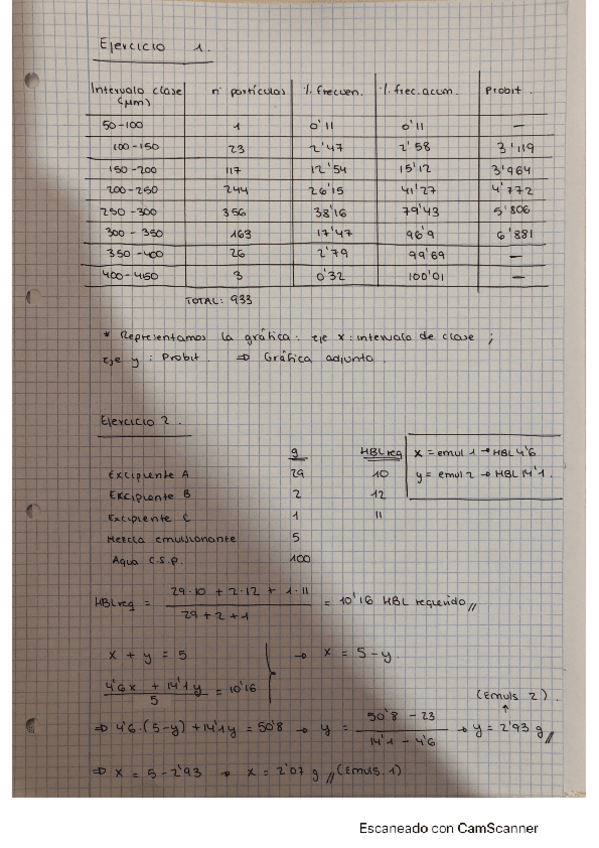 Ejercicio 1.
Intervalo clase (μm) nº partículas % frecuen. % frec. acum. Probit.
50-100 1 0'11 0'11 —
100-150 23 2'47 2'58 3'119
150-200 117 12'54 15'12 3'964
200-250 244 26'15 41'27 4'772
250-300 356 38'16 79'43 5'806
300-350 163 17'47 96'9 6'881
350-400 26 2'79 99'69 —
400-450 3 0'32 100'01 —
TOTAL: 933
* Representamos la gráfica: eje x: intervalo de clase;
eje y: Probit. ⇒ Gráfica adjunta.
Ejercicio 2.
g HBL req
Excipiente A 29 10
Excipiente B 2 12
Excipiente C 1 11
Mezcla emulsionante 5
Agua c.s.p. 100
x = emul 1 → HBL 4'6
y = emul 2 → HBL 14'1.
HBL req = (29·10 + 2·12 + 1·11) / (29 + 2 + 1) = 10'16 HBL requerido //
x + y = 5 → x = 5 - y.
(4'6x + 14'1y) / 5 = 10'16
(Emuls 2).
⇒ 4'6·(5-y) + 14'1y = 50'8 → y = (50'8 - 23) / (14'1 - 4'6) → y = 2'93 g //
⇒ x = 5 - 2'93 → x = 2'07 g // (Emuls. 1)
Escaneado con CamScanner